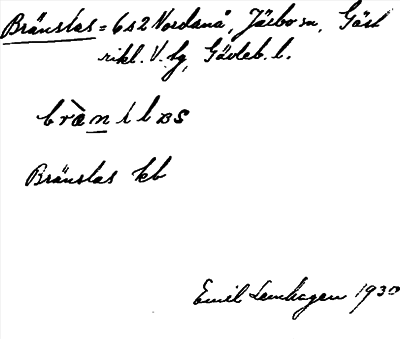 Bränslas = 6s2 Nordanå, Järbo sn, Gäst
rikl. V. tg, Gävleb. l.
bränslas
Bränslas kb
Emil Lenhagen 1930